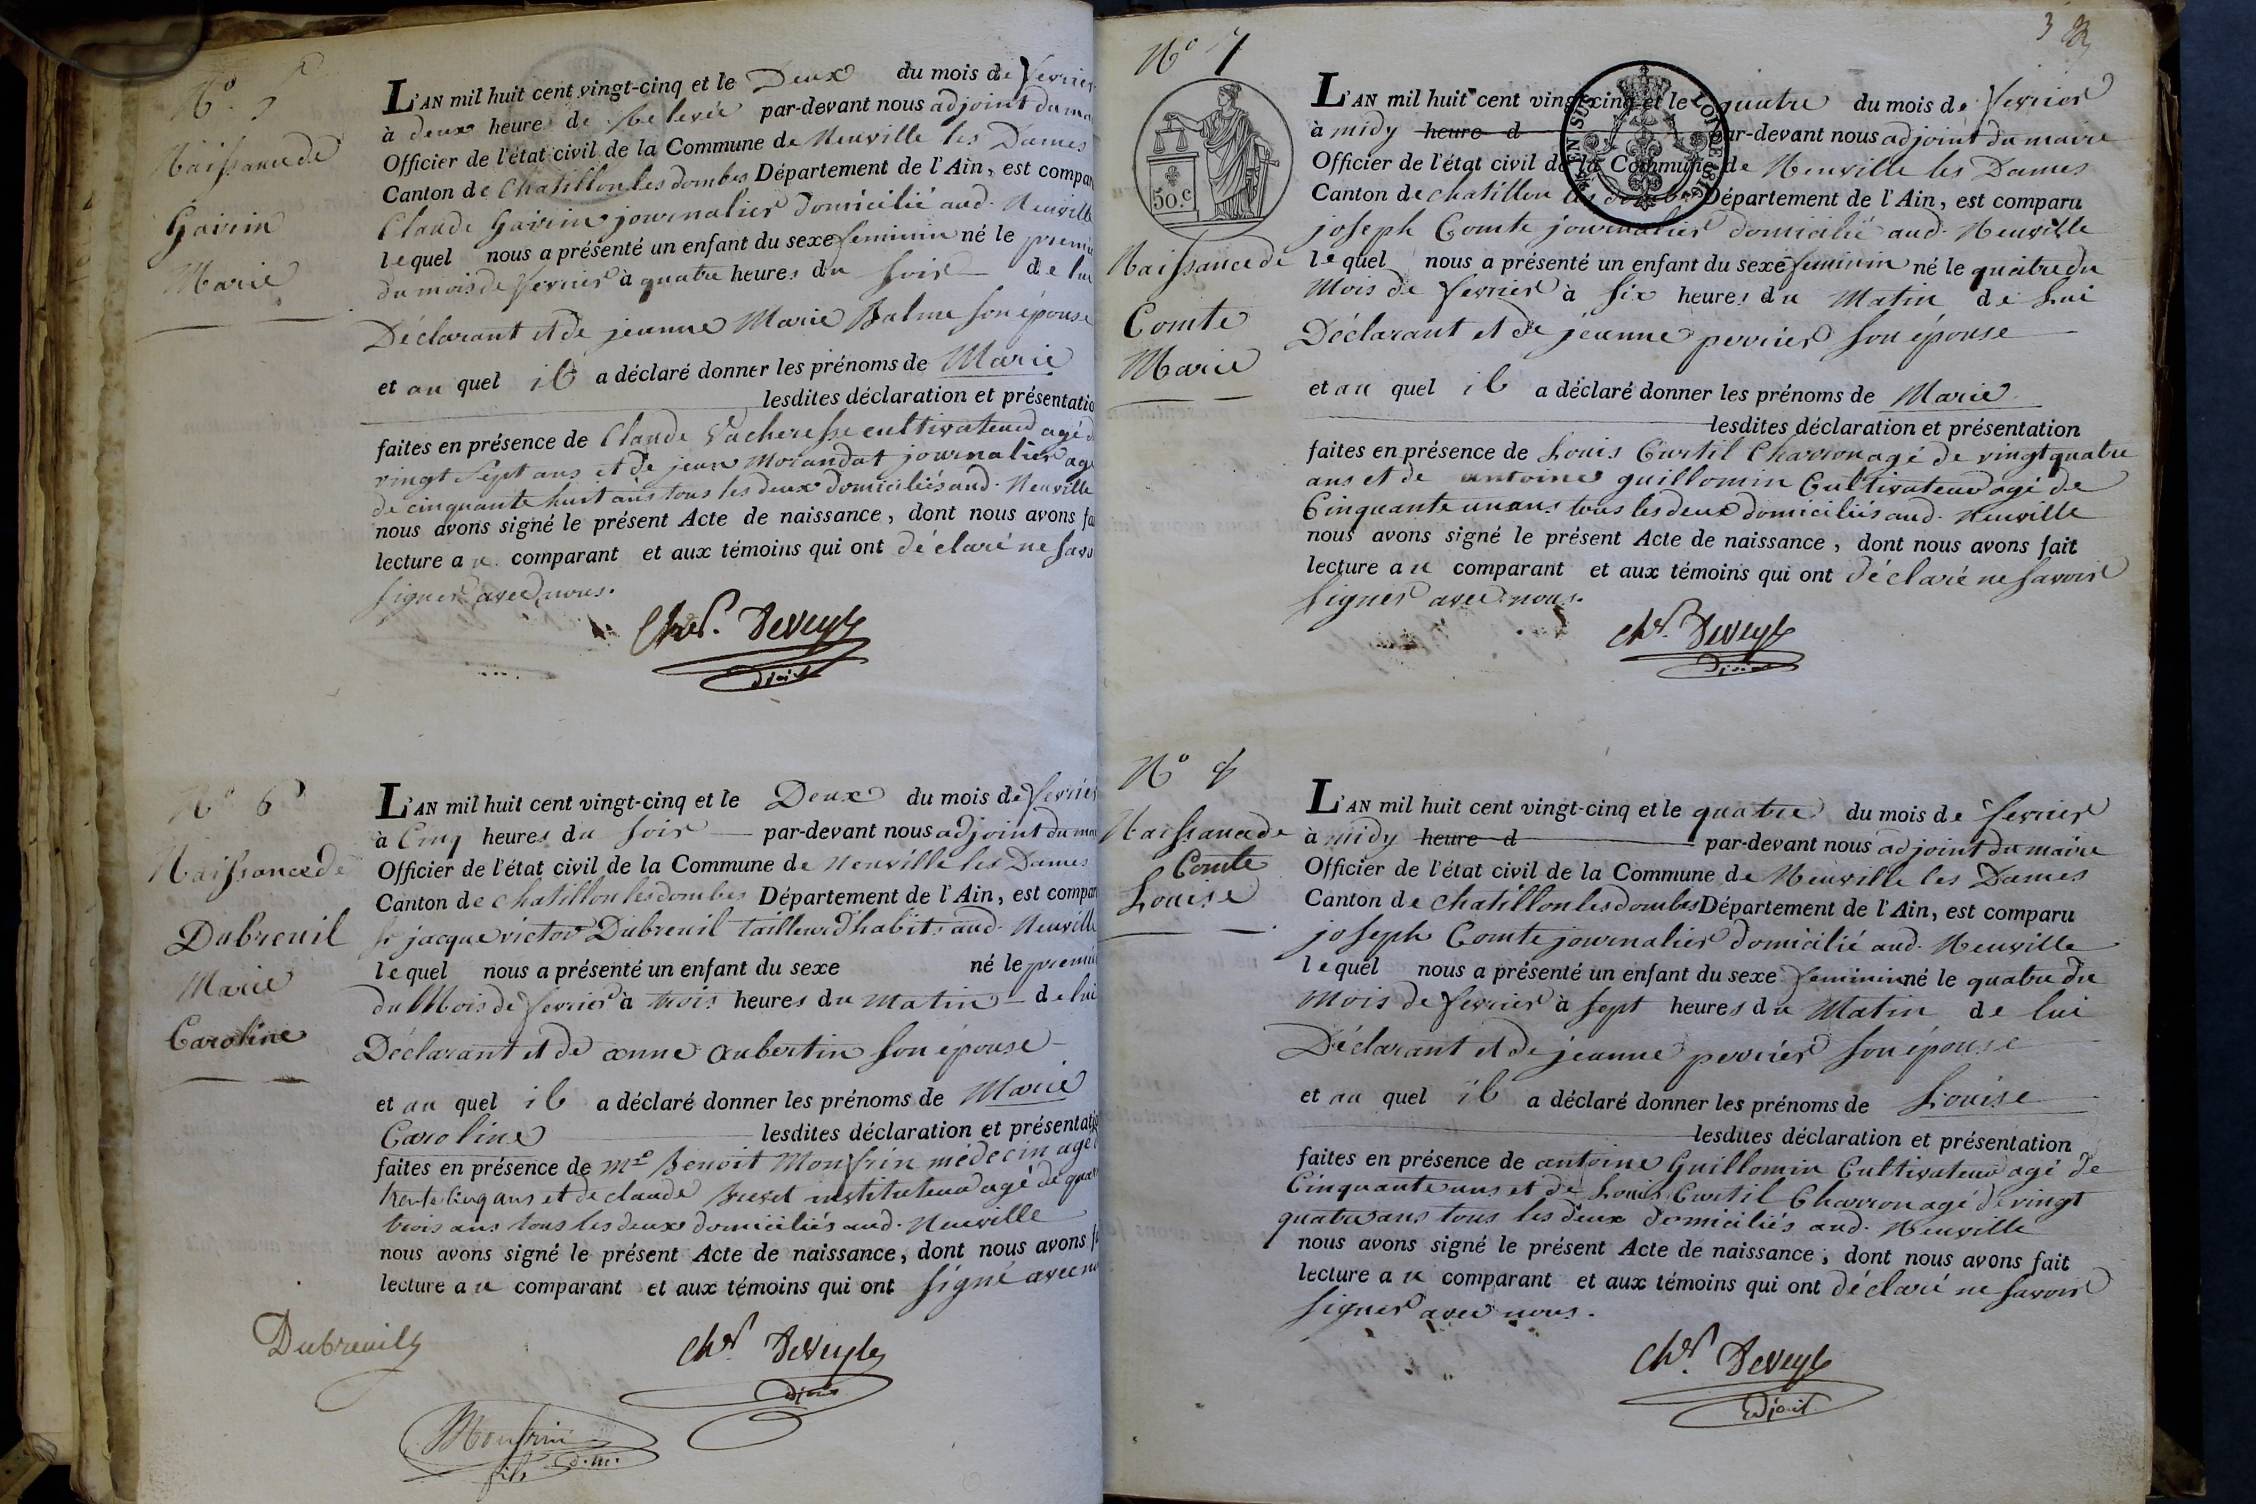 N.º 5
Naissance de
Gavrin
Marie
L'AN mil huit cent vingt-cinq et le Deux du mois de fevrier
à deux heures de relevée par-devant nous adjoint du ma
Officier de l'état civil de la Commune de Neuville les Dames
Canton de Chatillon les dombes Département de l'Ain, est compar
Claude Gavrin journalier domicilié aud. Neuville
lequel nous a présenté un enfant du sexe feminin né le premie
du mois de fevrier à quatre heures du soir de lui
Déclarant et de jeanne Marie Balme son épouse
et au quel il a déclaré donner les prénoms de Marie
lesdites déclaration et présentatio
faites en présence de Claude Vacheresse cultivateur agé d
vingt sept ans et de jean Morandat journalier ag
de cinquante huit ans tous les deux domiciliés aud. Neuville
nous avons signé le présent Acte de naissance, dont nous avons fa
lecture au comparant et aux témoins qui ont déclaré ne savo
signer avec nous.
Cher. Deveyle
adjoint
N.º 6
Naissance de
Dubreuil
Marie
Caroline
L'AN mil huit cent vingt-cinq et le Deux du mois de fevrier
à Cinq heures du soir par-devant nous adjoint du ma
Officier de l'état civil de la Commune de Neuville les Dames
Canton de chatillon les dombes Département de l'Ain, est compar
sr jacque victor Dubreuil tailleur d'habits aud. Neuville
lequel nous a présenté un enfant du sexe né le premie
du Mois de fevrier à trois heures du Matin de lui
Déclarant et de anne aubertin son épouse
et au quel il a déclaré donner les prénoms de Marie
Caroline lesdites déclaration et présentatio
faites en présence de mr Benoit Monfrin médecin agé
trente cinq ans et de claude instituteur agé de quar
trois ans tous les deux domiciliés aud. Neuville
nous avons signé le présent Acte de naissance, dont nous avons f
lecture au comparant et aux témoins qui ont signé avec no
Dubreuil
Cher. Deveyle
adjoint
Monfrin
fils d.m.
3
N.º 7
50.c
EN SUS LOI DE 1816
Naissance de
Comte
Marie
L'AN mil huit cent vingt-cinq et le quatre du mois de fevrier
à midy heure d par-devant nous adjoint du maire
Officier de l'état civil de la Commune de Neuville les Dames
Canton de chatillon les dombes Département de l'Ain, est comparu
joseph Comte journalier domicilié aud. Neuville
lequel nous a présenté un enfant du sexe feminin né le quatre du
Mois de fevrier à six heures du Matin de Lui
Déclarant et de jeanne perrier son épouse
et au quel il a déclaré donner les prénoms de Marie
lesdites déclaration et présentation
faites en présence de Louis Curtil Charron agé de vingt quatre
ans et de antoine guillomin Cultivateur agé de
Cinquante un ans tous les deux domiciliés aud. Neuville
nous avons signé le présent Acte de naissance, dont nous avons fait
lecture au comparant et aux témoins qui ont déclaré ne savoir
signer avec nous.
Cher. Deveyle
adjoint
N.º 8
Naissance de
Comte
Louise
L'AN mil huit cent vingt-cinq et le quatre du mois de fevrier
à midy heure d par-devant nous adjoint du maire
Officier de l'état civil de la Commune de Neuville les Dames
Canton de chatillon les dombes Département de l'Ain, est comparu
joseph Comte journalier domicilié aud. Neuville
lequel nous a présenté un enfant du sexe feminin né le quatre du
Mois de fevrier à sept heures du Matin de lui
Déclarant et de jeanne perrier son épouse
et au quel il a déclaré donner les prénoms de Louise
lesdites déclaration et présentation
faites en présence de antoine Guillomin Cultivateur agé de
Cinquante un ans et de Louis Curtil Charron agé de vingt
quatre ans tous les deux domiciliés aud. Neuville
nous avons signé le présent Acte de naissance, dont nous avons fait
lecture au comparant et aux témoins qui ont déclaré ne savoir
signer avec nous.
Cher. Deveyle
adjoint